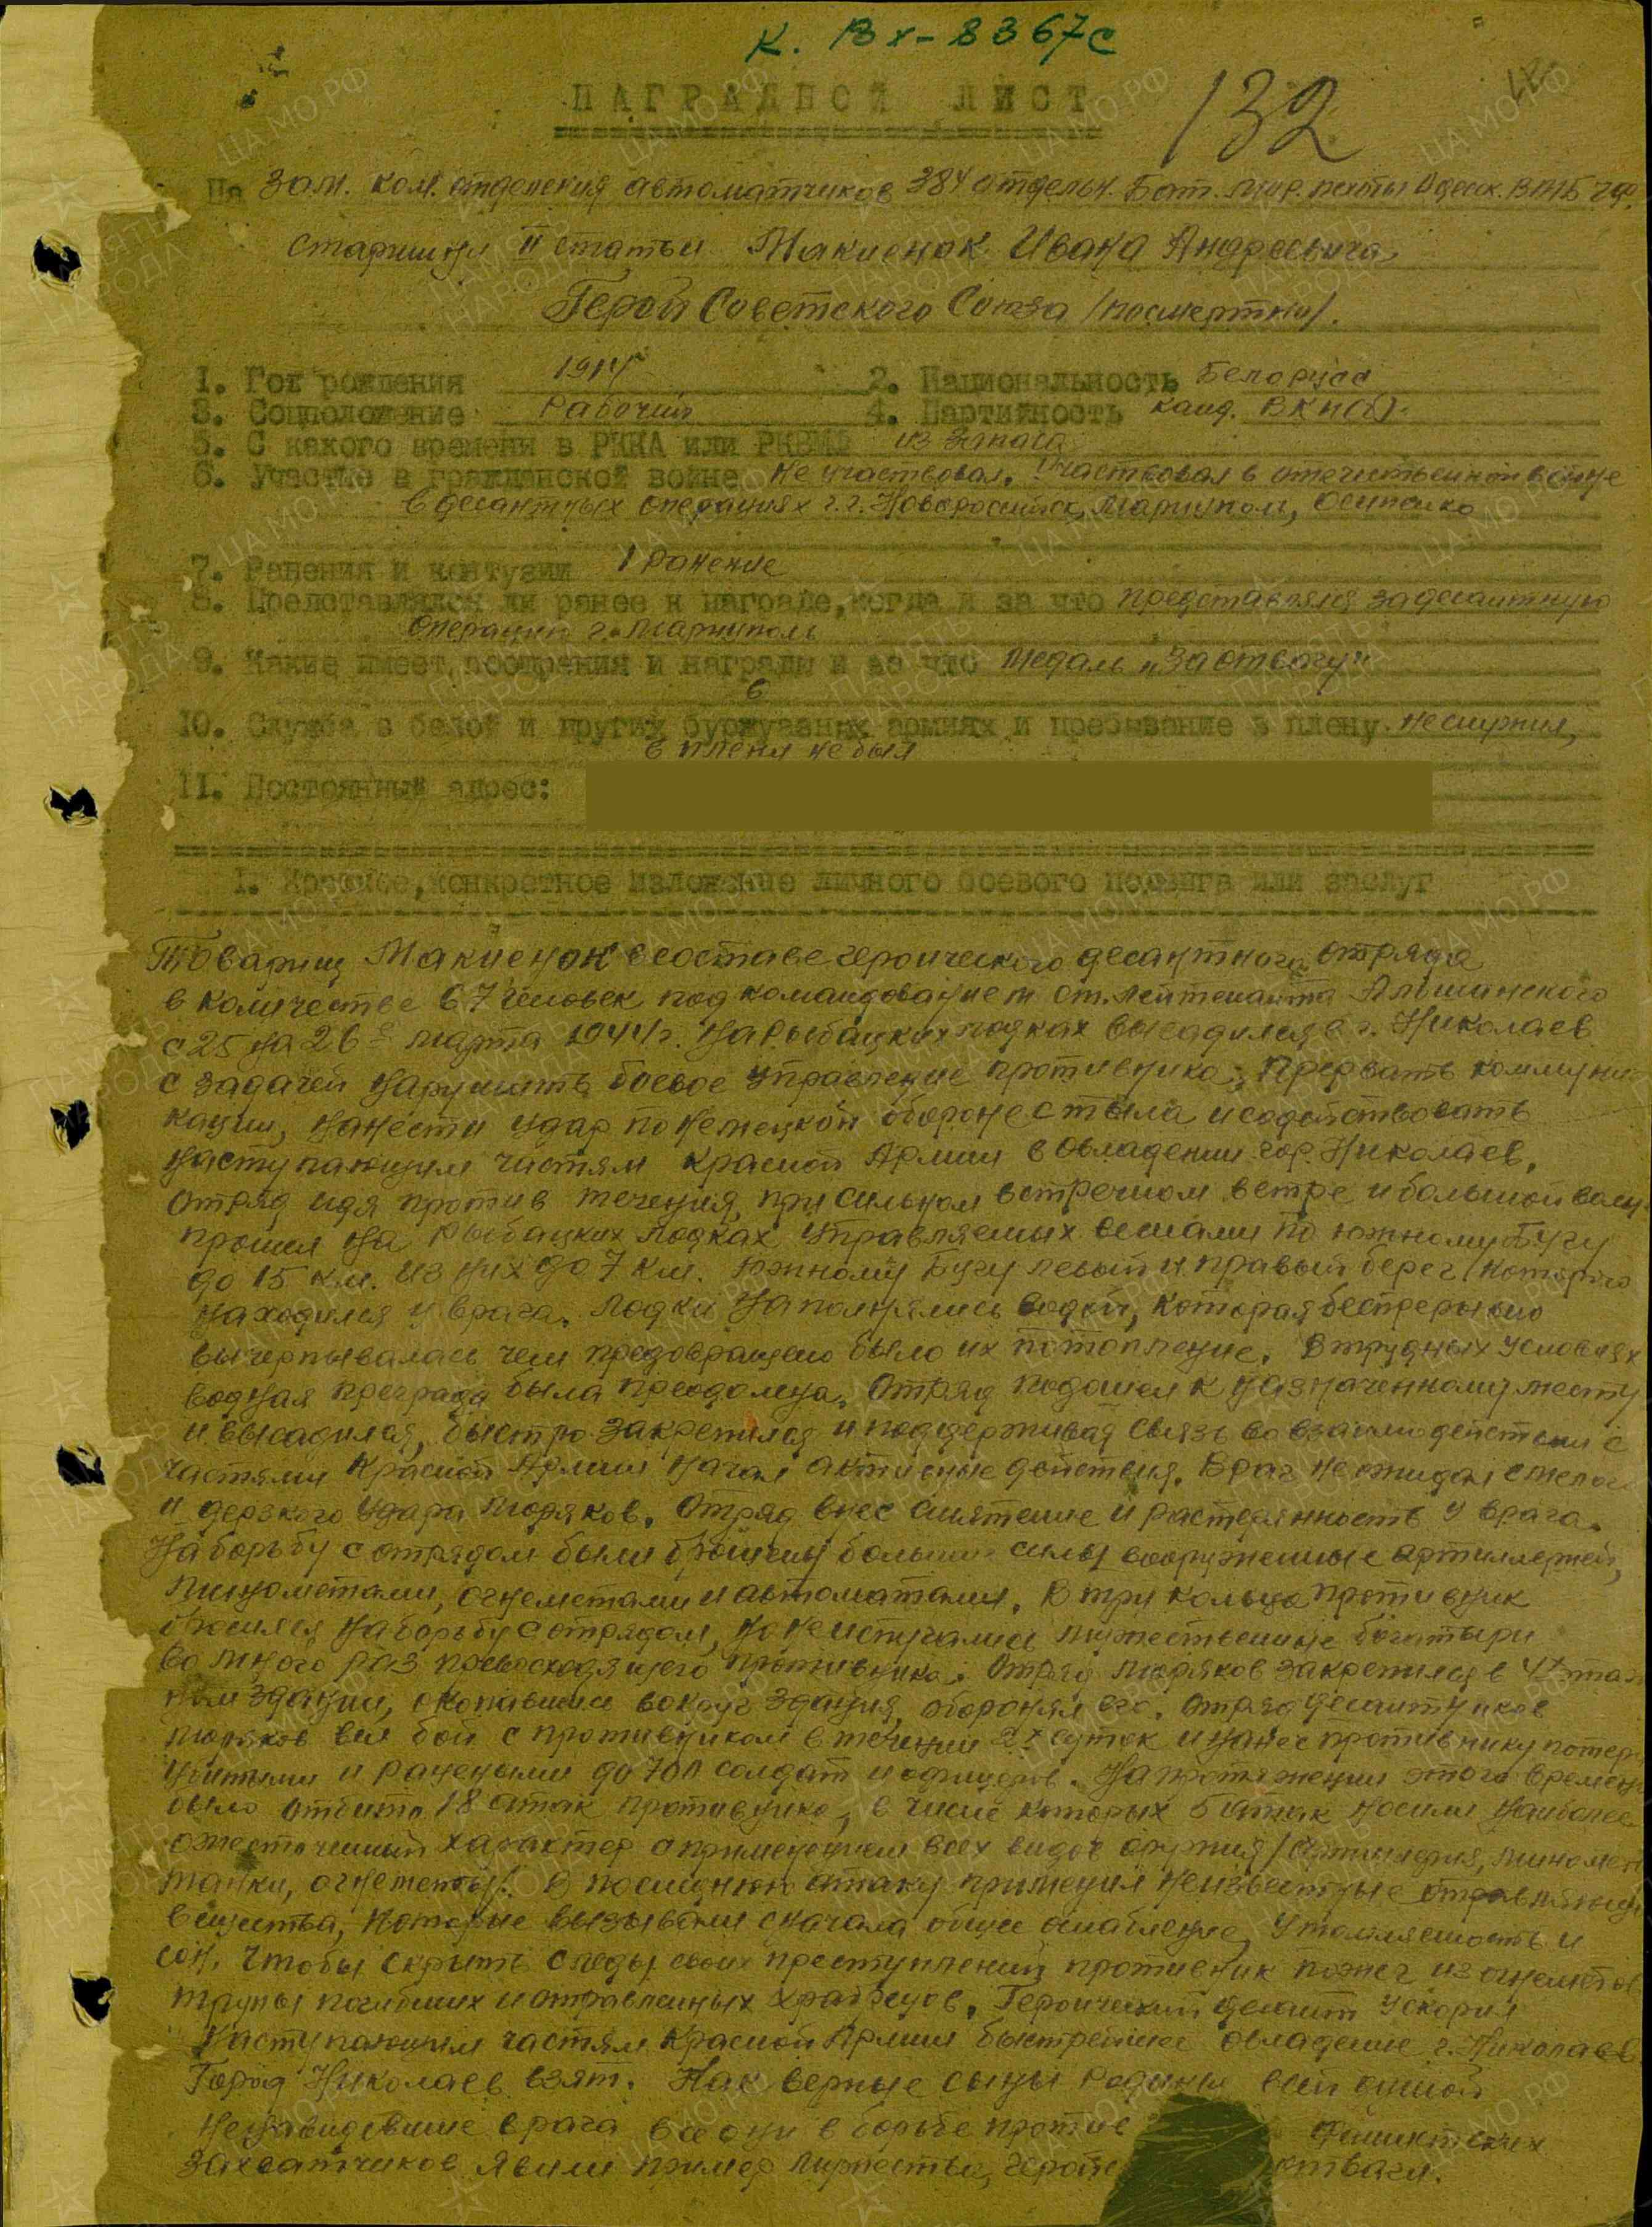 К. Вх-8367с
НАГРАДНОЙ ЛИСТ
132
На Зам. ком. отделения автоматчиков 384 отдельн. Бат. мор. пехоты Одесск. ВМБ ЧФ.
старшину II статьи Макиенок Ивана Андреевича
Герой Советского Союза /посмертно/.
1. Год рождения 1914 2. Национальность Белорусс
3. Соцположение Рабочий 4. Партийность канд. ВКП(б).
5. С какого времени в РККА или РКВМФ из запаса
6. Участие в гражданской войне Не участвовал. Участвовал в отечественной войне
в десантных операциях г.г. Новороссийск, Мариуполь, Осипенко
7. Ранения и контузии 1 ранение
8. Представлялся ли ранее к награде, когда и за что представлялся за десантную
операцию г. Мариуполь
9. Какие имеет поощрения и награды и за что Медаль „За отвагу"
10. Служба в белой и других буржуазных армиях и пребывание в плену. не служил,
в плену не был
11. Постоянный адрес:
1. Краткое, конкретное изложение личного боевого подвига или заслуг
Товарищ Макиенок в составе героического десантного отряда
в количестве 67 человек под командованием ст. лейтенанта Альшанского
с 25 на 26е марта 1944 г. на рыбацких лодках высадился в г. Николаев
с задачей нарушить боевое управление противника. Прервать коммуни-
кации, нанести удар по немецкой обороне с тыла и содействовать
наступающим частям Красной Армии в овладении гор. Николаев.
Отряд идя против течения, при сильном встречном ветре и большой волн
прошел на рыбацких лодках управляемых веслами по южному Бугу
до 15 км. из них до 7 км. Южному Бугу левый и правый берег которого
находился у врага. Лодки наполнялись водой, которая беспрерывно
вычерпывалась чем предовращено было их потопление. В трудных условиях
водная преграда была преодолена. Отряд подошел к назначенному месту
и высадился, быстро закрепился и поддерживая связь во взаимодействии с
частями Красной Армии начал активные действия. Враг не ожидал смелого
и дерзкого удара моряков. Отряд внес смятение и растерянность у врага.
На борьбу с отрядом были брошены большие силы вооруженные артиллерией,
минометами, огнеметами и автоматами. В три кольца противник
бросился на борьбу с отрядом, но не испугались мужественные богатыри
во много раз превосходящего противника. Отряд моряков закрепился в 4х этаж
ном здании, окопавшись вокруг здания, обороняя его. Отряд десантников
моряков вел бой с противником в течении 2х суток и нанес противнику потери
убитыми и ранеными до 700 солдат и офицеров. На протяжении этого времени
было отбито 18 атак противника, в числе которых 5 атак носили наиболее
ожесточенный характер с применением всех видов оружия /артиллерия, миномет
танки, огнеметы/. В последнюю атаку применил неизвестные отравляющ
вещества, которые вызывали сначала общее ослабление, утомляемость и
сон. Чтобы скрыть следы своих преступлений противник пожег из огнеметов
трупы погибших и отравленных храбрецов. Героический десант ускорил
наступающим частям Красной Армии быстрейшее овладение г. Николаев
Город Николаев взят. Как верные сыны родины всей душой
ненавидевшие врага все они в борьбе против фашистских
захватчиков явили пример мужества, герой отваги.